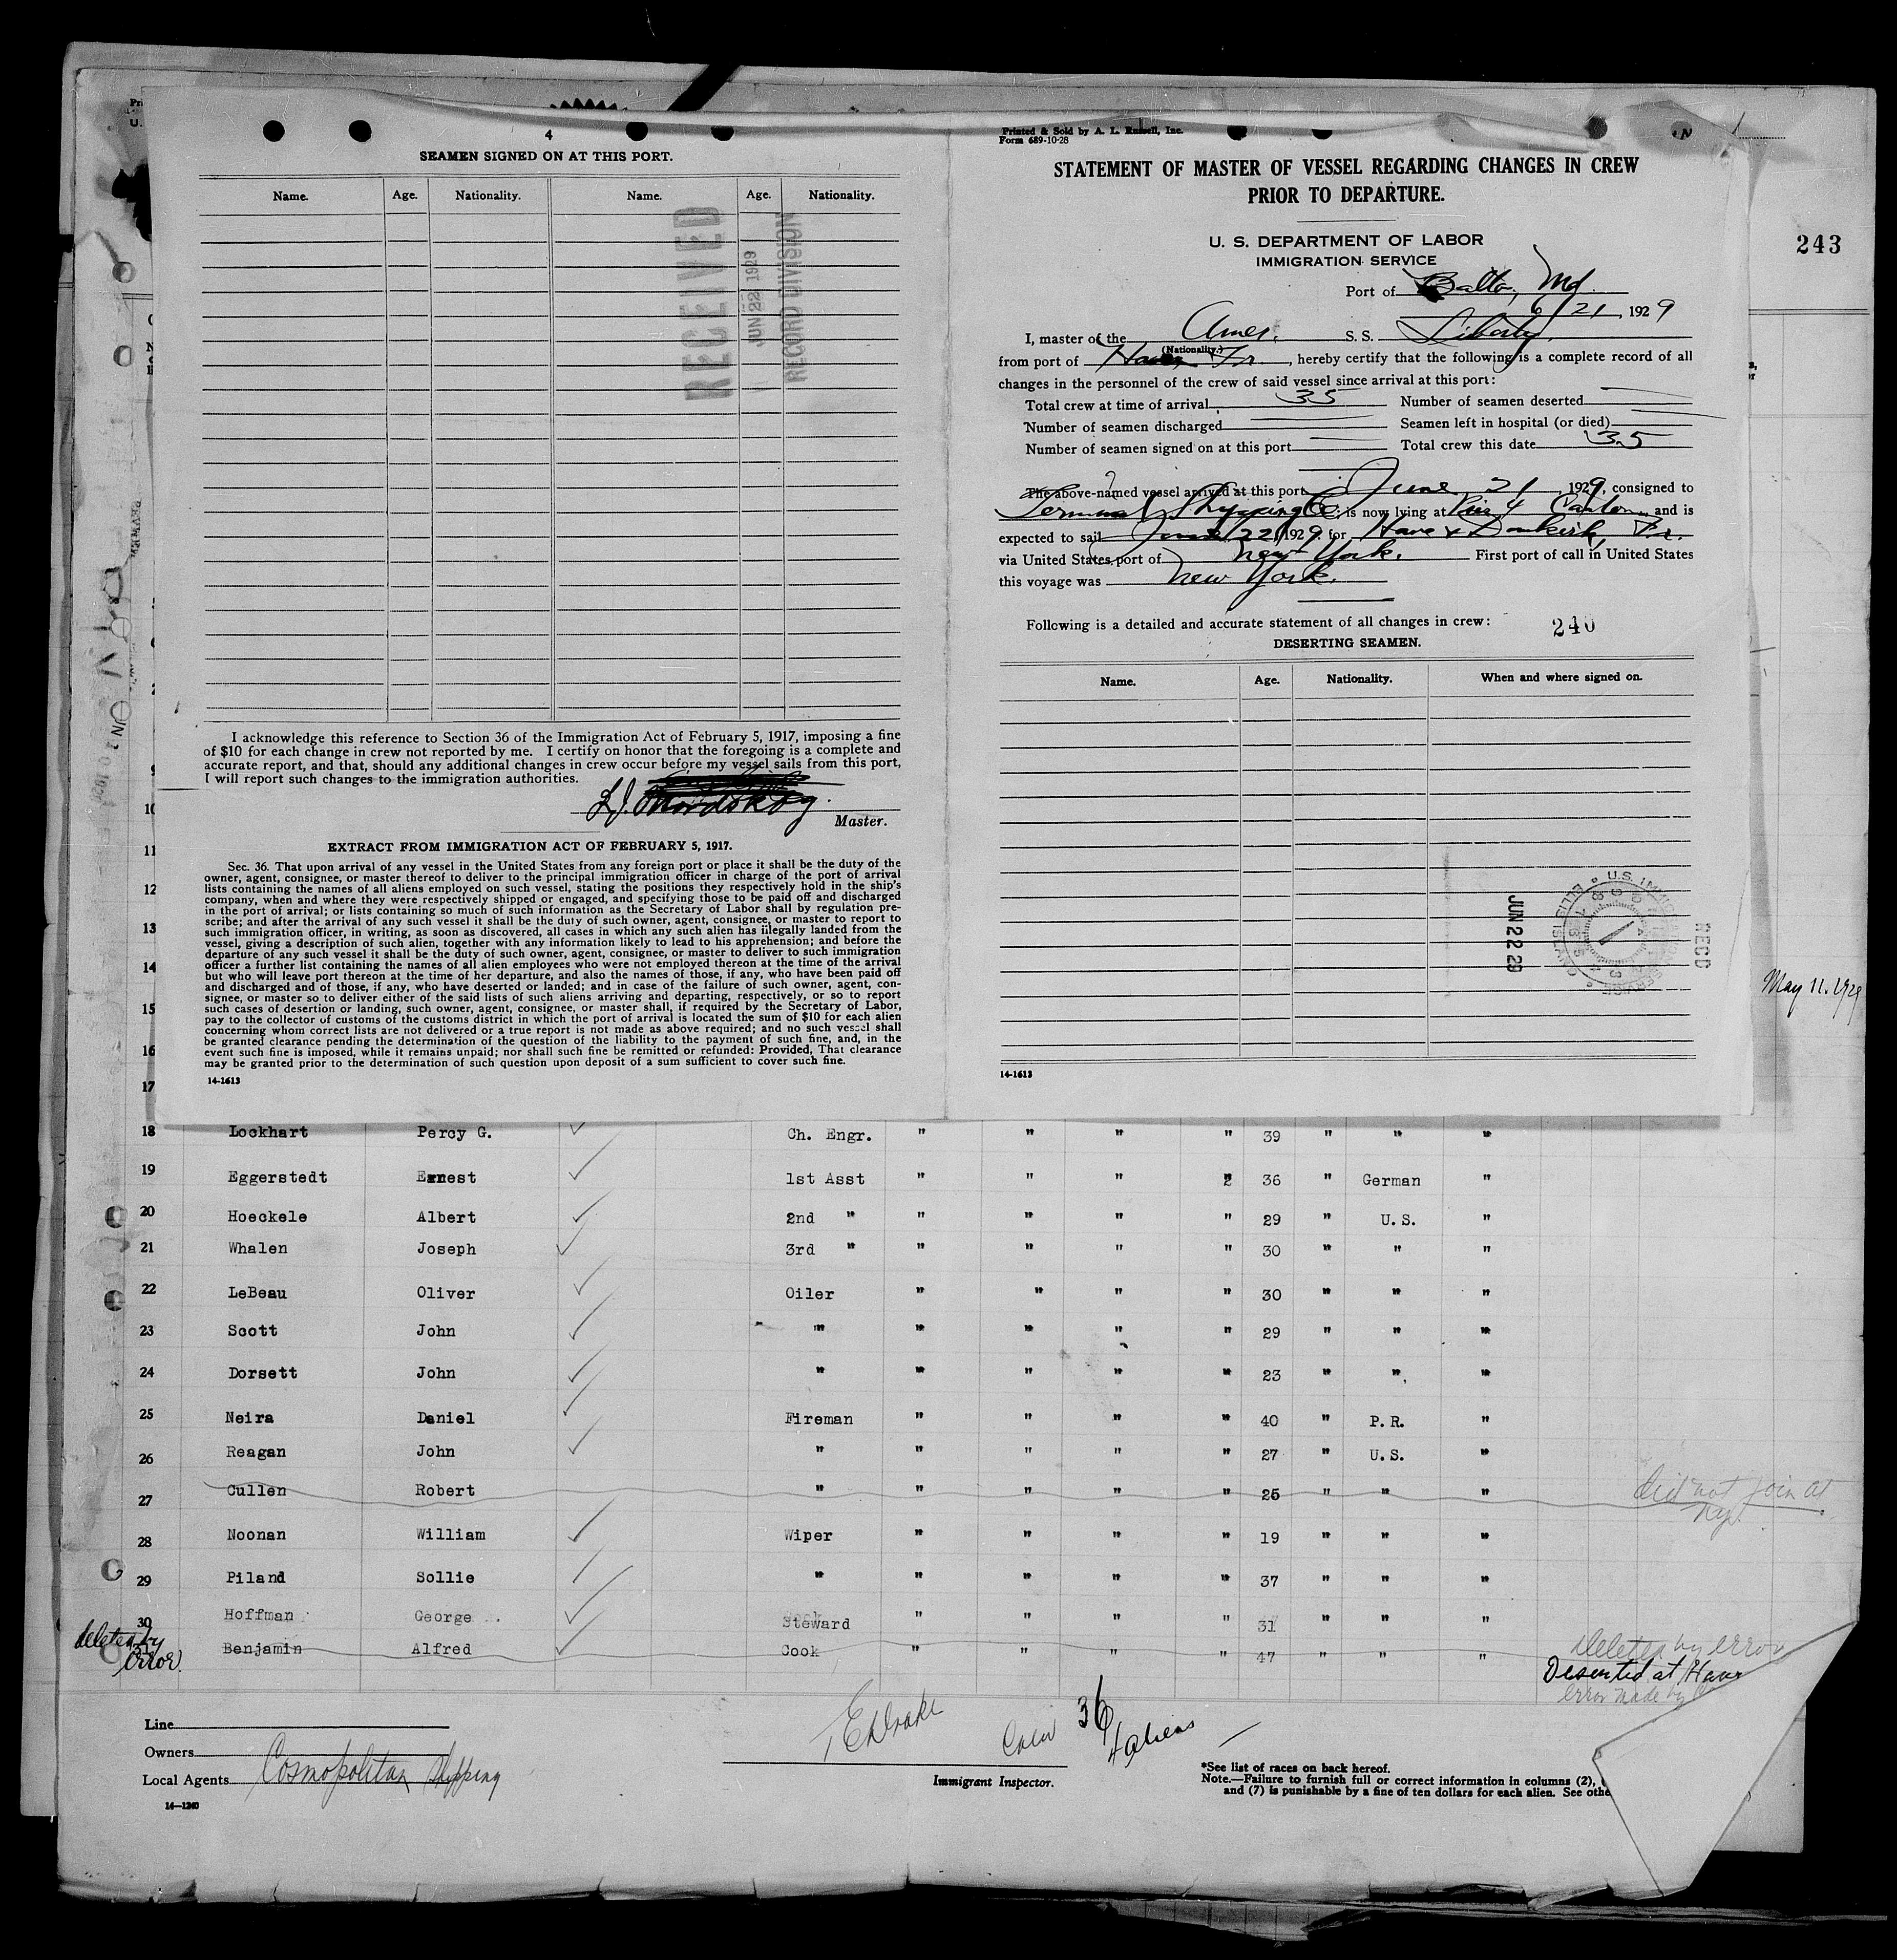 4
SEAMEN SIGNED ON AT THIS PORT.
Name. Age. Nationality. Name. Age. Nationality.
RECEIVED
JUN 22 1929
RECORD DIVISION
I acknowledge this reference to Section 36 of the Immigration Act of February 5, 1917, imposing a fine
of $10 for each change in crew not reported by me. I certify on honor that the foregoing is a complete and
accurate report, and that, should any additional changes in crew occur before my vessel sails from this port,
I will report such changes to the immigration authorities.
Master.
EXTRACT FROM IMMIGRATION ACT OF FEBRUARY 5, 1917.
Sec. 36. That upon arrival of any vessel in the United States from any foreign port or place it shall be the duty of the
owner, agent, consignee, or master thereof to deliver to the principal immigration officer in charge of the port of arrival
lists containing the names of all aliens employed on such vessel, stating the positions they respectively hold in the ship's
company, when and where they were respectively shipped or engaged, and specifying those to be paid off and discharged
in the port of arrival; or lists containing so much of such information as the Secretary of Labor shall by regulation pre-
scribe; and after the arrival of any such vessel it shall be the duty of such owner, agent, consignee, or master to report to
such immigration officer, in writing, as soon as discovered, all cases in which any such alien has illegally landed from the
vessel, giving a description of such alien, together with any information likely to lead to his apprehension; and before the
departure of any such vessel it shall be the duty of such owner, agent, consignee, or master to deliver to such immigration
officer a further list containing the names of all alien employees who were not employed thereon at the time of the arrival
but who will leave port thereon at the time of her departure, and also the names of those, if any, who have been paid off
and discharged and of those, if any, who have deserted or landed; and in case of the failure of such owner, agent, con-
signee, or master so to deliver either of the said lists of such aliens arriving and departing, respectively, or so to report
such cases of desertion or landing, such owner, agent, consignee, or master shall, if required by the Secretary of Labor,
pay to the collector of customs of the customs district in which the port of arrival is located the sum of $10 for each alien
concerning whom correct lists are not delivered or a true report is not made as above required; and no such vessel shall
be granted clearance pending the determination of the question of the liability to the payment of such fine, and, in the
event such fine is imposed, while it remains unpaid; nor shall such fine be remitted or refunded: Provided, That clearance
may be granted prior to the determination of such question upon deposit of a sum sufficient to cover such fine.
14-1613
Printed & Sold by A. L. Russell, Inc.
Form 689-10-28
STATEMENT OF MASTER OF VESSEL REGARDING CHANGES IN CREW
PRIOR TO DEPARTURE.
U. S. DEPARTMENT OF LABOR
IMMIGRATION SERVICE
Port of Balto, Md.
6/21, 1929
I, master of the Amer. S. S. Liberty
(Nationality.)
from port of Havre, Fr., hereby certify that the following is a complete record of all
changes in the personnel of the crew of said vessel since arrival at this port:
Total crew at time of arrival 35 Number of seamen deserted
Number of seamen discharged Seamen left in hospital (or died)
Number of seamen signed on at this port Total crew this date 35
The above-named vessel arrived at this port June 21, 1929, consigned to
Terminal Shipping Co; is now lying at Pier 4 Canton, and is
expected to sail June 22, 1929 for Havre & Dunkirk, Fr.
via United States port of New York. First port of call in United States
this voyage was New York.
Following is a detailed and accurate statement of all changes in crew: 240
DESERTING SEAMEN.
Name. Age. Nationality. When and where signed on.
JUN 22 29
RECD
14-1613
243
May 11. 1929
10
11
12
13
14
15
16
17
18 Lockhart Percy G. Ch. Engr. " " " " 39 " " "
19 Eggerstedt Ernest 1st Asst " " " 2 36 " German "
20 Hoeckele Albert 2nd " " " " " 29 " U.S. "
21 Whalen Joseph 3rd " " " " " 30 " " "
22 LeBeau Oliver Oiler " " " " 30 " " "
23 Scott John " " " " " 29 " " "
24 Dorsett John " " " " " 23 " " "
25 Neira Daniel Fireman " " " " 40 " P.R. "
26 Reagan John " " " " " 27 " U.S. "
27 Cullen Robert " " " " " 25 " " " did not join at Ny.
28 Noonan William Wiper " " " " 19 " " "
29 Piland Sollie " " " " " 37 " " "
30 Hoffman George Steward " " " " 31 " " "
deleted by error. Benjamin Alfred Cook " " " " 47 " " " Deleted by error
Deserted at Havr
error made by
Line
Owners
Local Agents Cosmopolitan Shipping
14—1240
36
4 aliens
Immigrant Inspector.
*See list of races on back hereof.
Note.—Failure to furnish full or correct information in columns (2),
and (7) is punishable by a fine of ten dollars for each alien. See othe